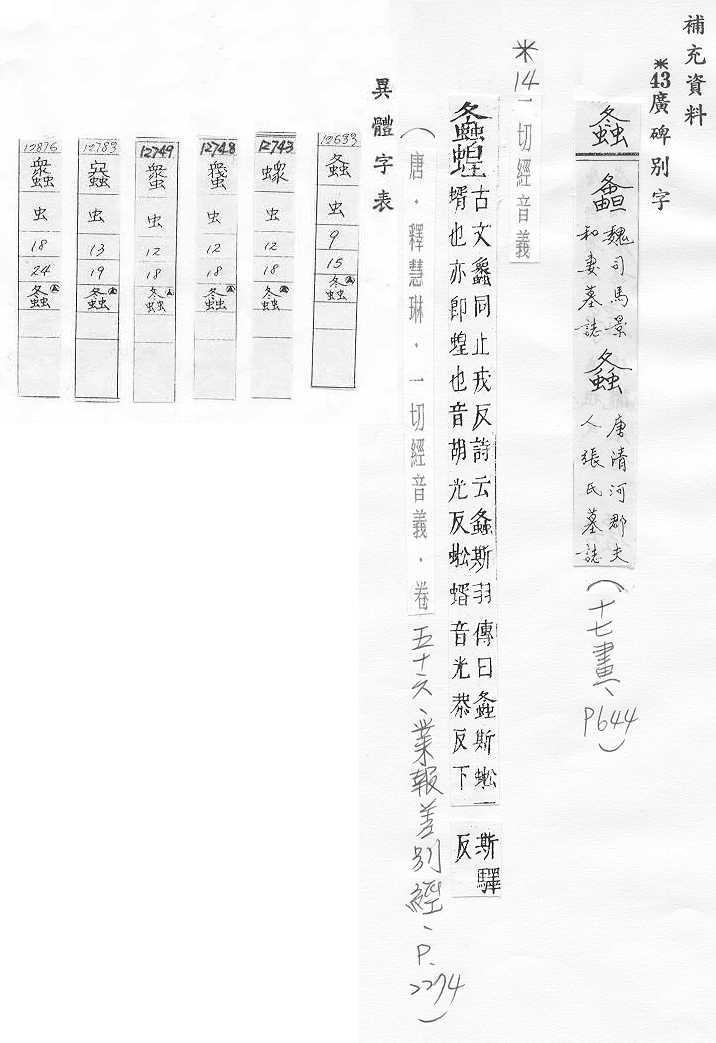 補充資料
*43廣碑別字
螽
魏司馬景
和妻墓誌
螽
唐清河郡夫
人張氏墓誌
（十七畫、P644）
*14一切經音義
螽蝗
古文螽同止戎反詩云螽斯羽傳曰螽斯蜙
蝑也亦即蝗也音胡光反蜙蝑音光恭反下
斯驛
反
（唐．釋慧琳．一切經音義．卷五十六、業報差別經、P.2274）
異體字表
12633
螽
虫
9
15
螽
12743
虫
12
18
螽
12748
虫
12
18
螽
12749
虫
12
18
螽
12783
虫
13
19
螽
12876
虫
18
24
螽